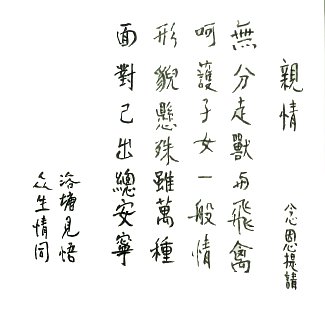 親情
無分走獸與飛禽
呵護子女一般情
形貌懸殊雖萬種
面對己出總安寧
洛塘見悟
众生情同
念恩提請